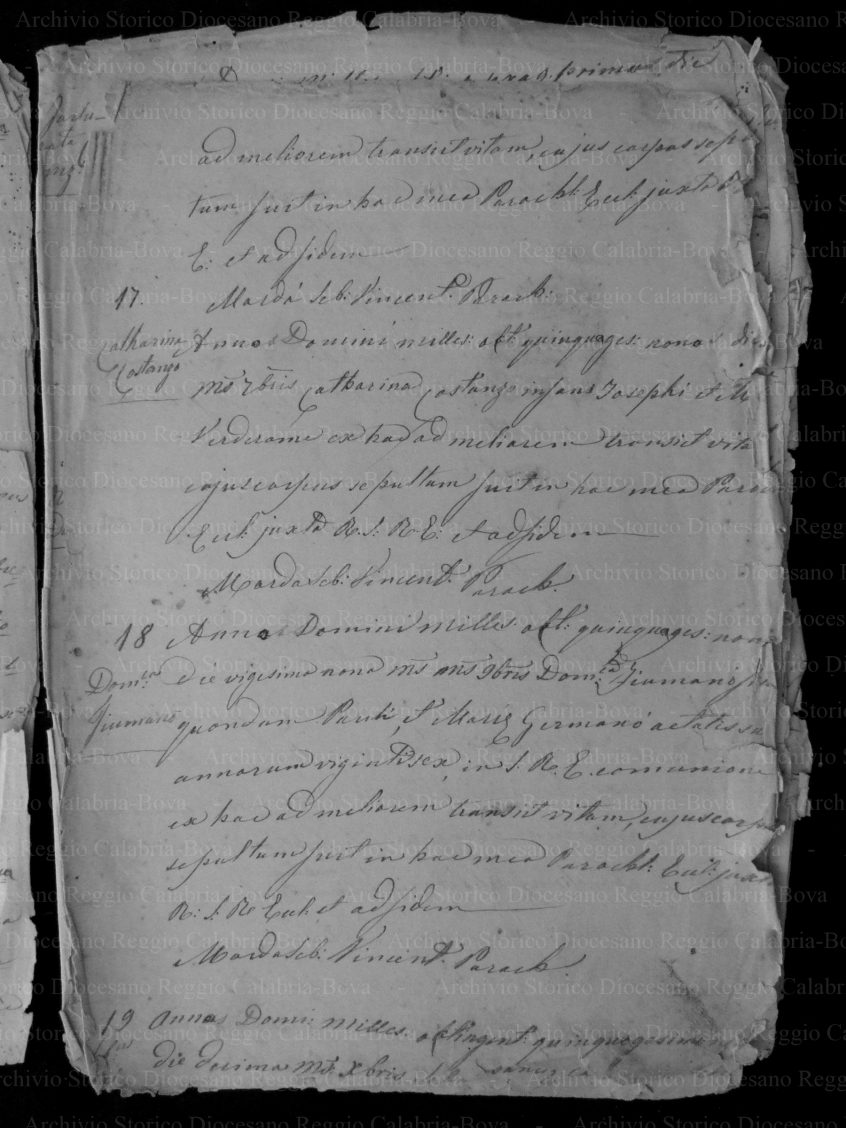 primo die
ad meliorem transivit vitam, cujus corpus sepul
tum fuit in hac mea Parochli: Eccl: juxta
E: et ad fidem
17. Mordà Seb: Vincent: Paroch:
Catharina
Costanzo
Annos Domini milles: oct: quinquages: nonos die
ms 7bris Catharina Costanzo infans Josephi et M
Verderame ex hac ad meliorem transivit vita
cujus corpus sepultum fuit in hac mea Paroch
Eccl: juxta R. S. R. E: et ad fidem
Morda Seb: Vincent: Paroch:
18 Anno Domini milles: oct: quinquages: nono
Dom:ca
Fiumanò
die vigesima nona ms 9bris Dom:ca Fiumanò
quondam Pauli, et Mariæ Germanò aetatis su
annorum viginti sex, in S. R. E. comunione
ex hac ad meliorem transivit vitam, cujus corpu
sepultum fuit in hac mea Parochli: Eccl: juxt
R: S. R. Eccl. et ad fidem
Morda Seb: Vincent: Paroch:
19 Annos Domi: milles: octingent: quinquagesimo
die decima ms Xbris
Archivio Storico Diocesano Reggio Calabria-Bova